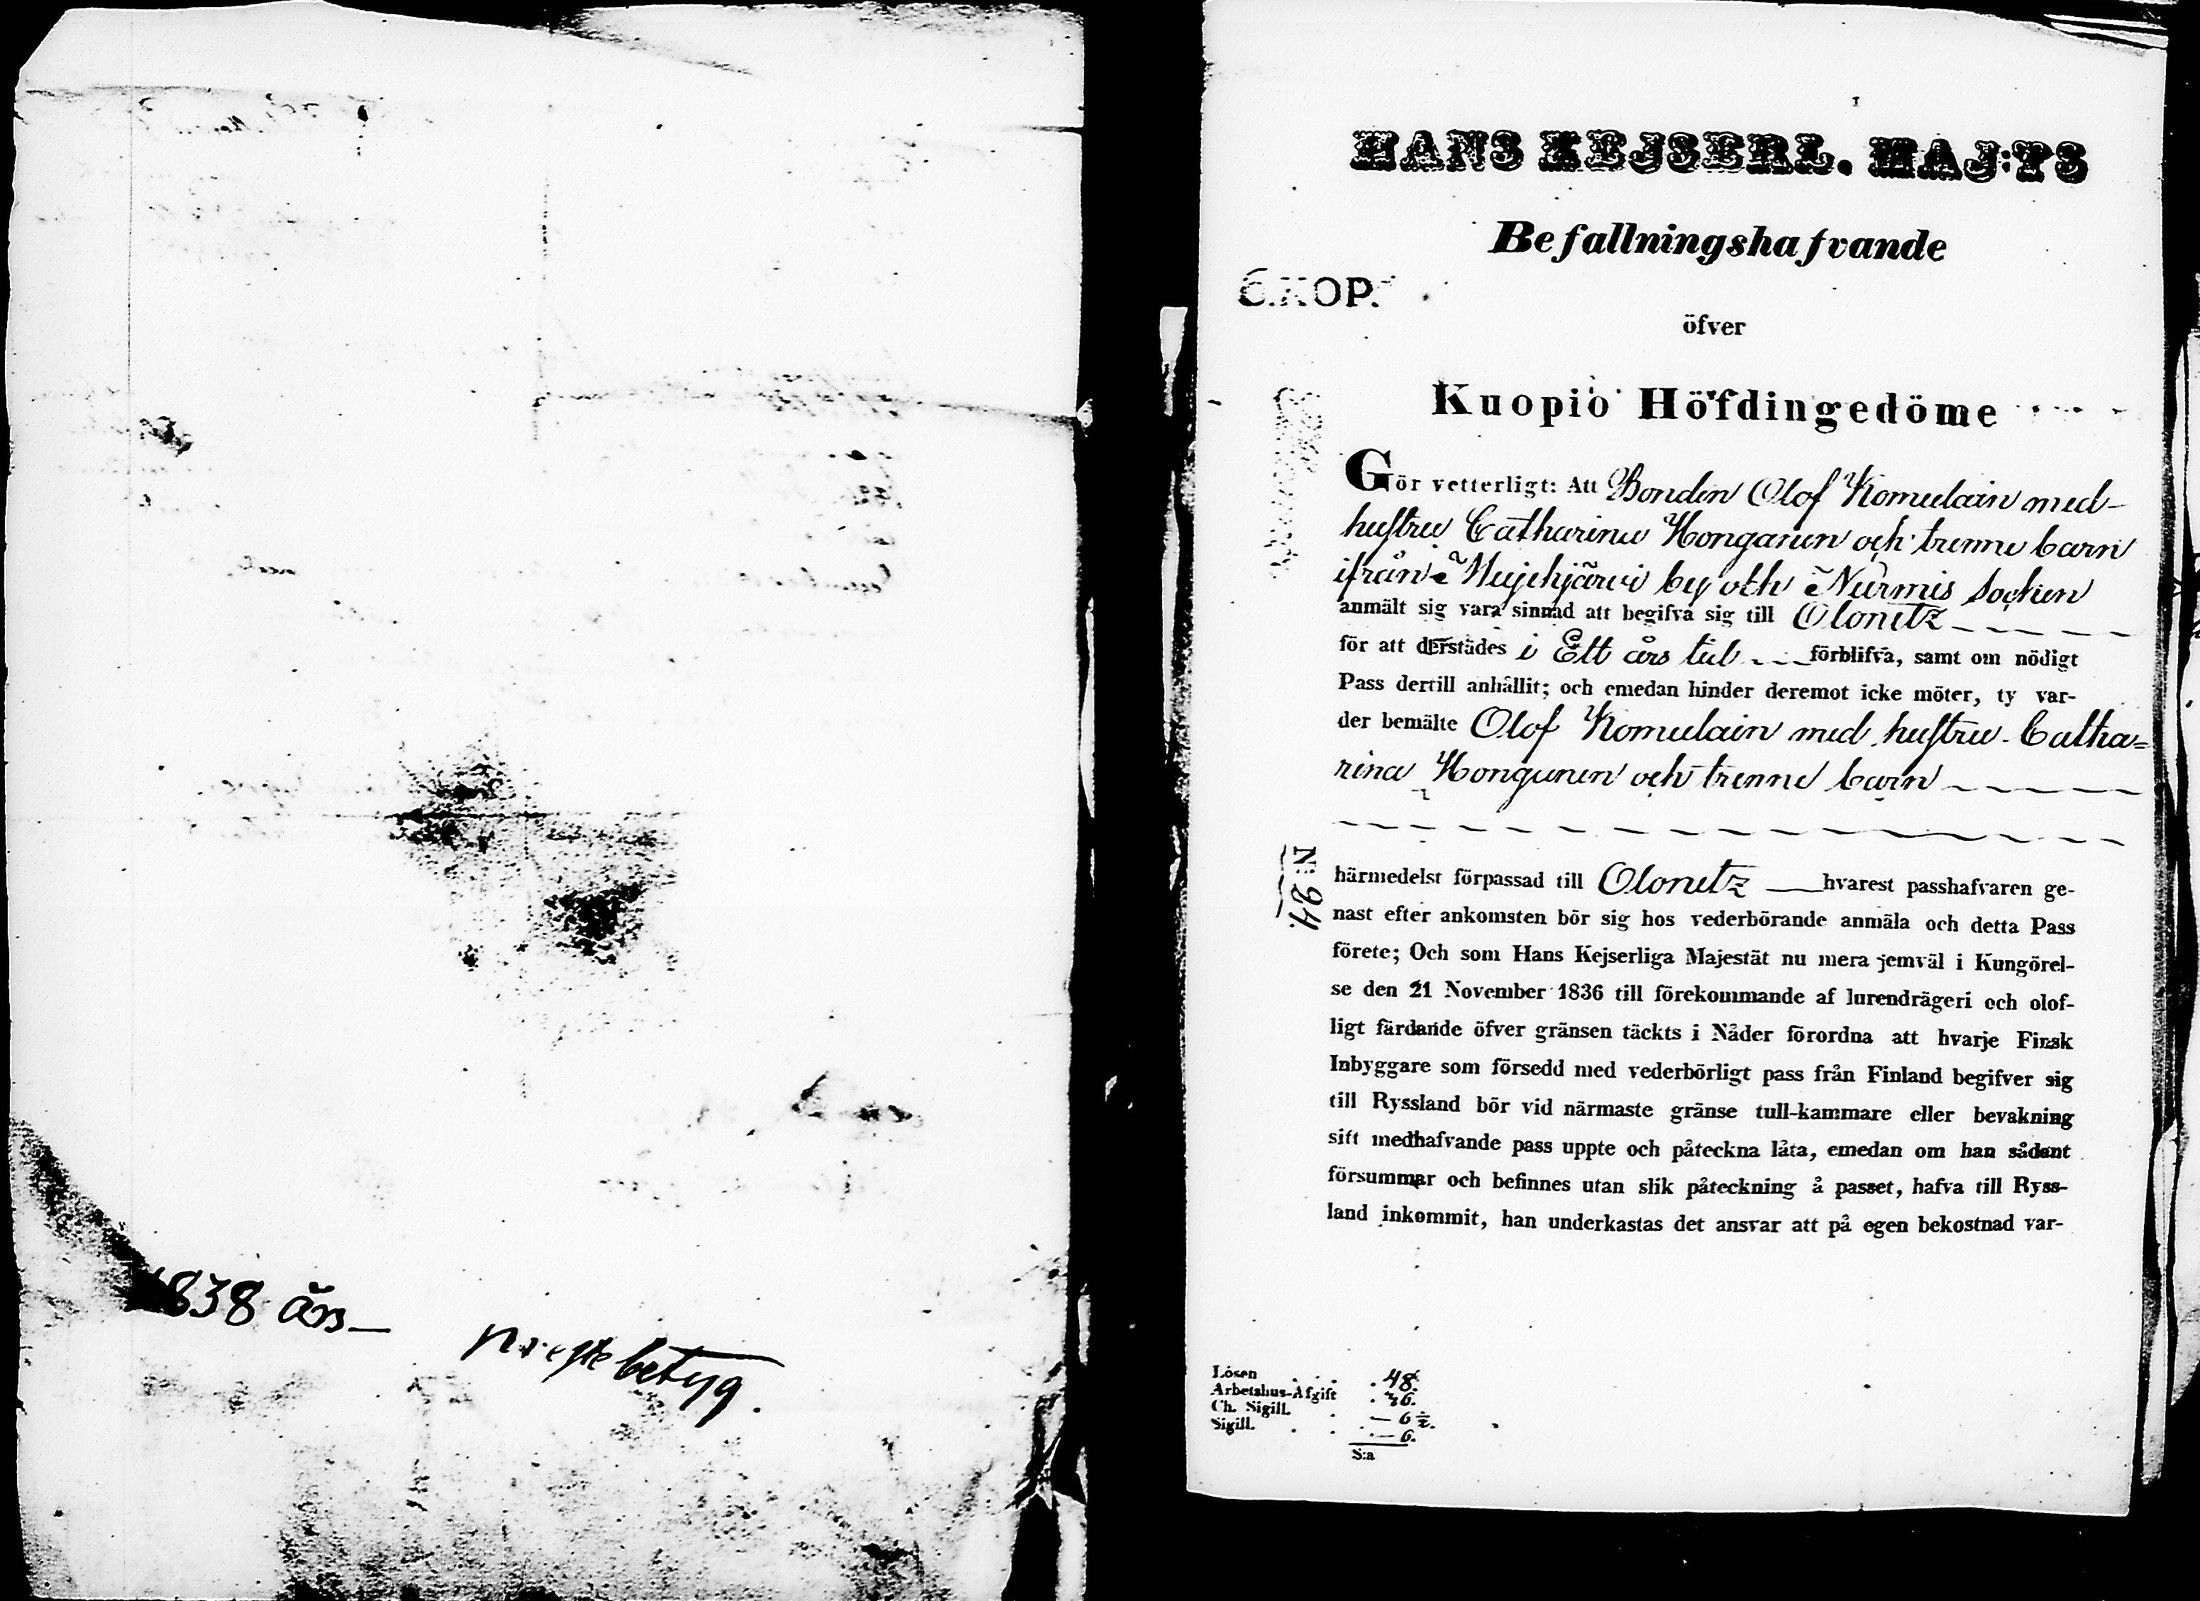 1838 års
prestebetyg.
HANS KEJSERL. MAJ:TS
Befallningshafvande
6.KOP.
öfver
Kuopio Höfdingedöme
Gör vetterligt: Att Bonden Olof Komulain med
hustru Catharina Honganen och trenne barn
ifrån Mujehjärvi by och Nurmis Socken
anmält sig vara sinnad att begifva sig till Olonetz
för att derstädes i Ett års tid förblifva, samt om nödigt
Pass dertill anhållit; och emedan hinder deremot icke möter, ty var-
der bemälte Olof Komulain med hustru Catha=
rina Honganen och trenne barn
N: 94.
härmedelst förpassad till Olonetz hvarest passhafvaren ge-
nast efter ankomsten bör sig hos vederbörande anmäla och detta Pass
förete; Och som Hans Kejserliga Majestät nu mera jemväl i Kungörel-
se den 21 November 1836 till förekommande af lurendrägeri och olof-
ligt färdande öfver gränsen täckts i Nåder förordna att hvarje Finsk
Inbyggare som försedd med vederbörligt pass från Finland begifver sig
till Ryssland bör vid närmaste gränse tull-kammare eller bevakning
sitt medhafvande pass uppte och påteckna låta, emedan om han sådant
försummar och befinnes utan slik påteckning å passet, hafva till Ryss-
land inkommit, han underkastas det ansvar att på egen bekostnad var-
Lösen . . . 48.
Arbetshus-Afgift . 36.
Ch. Sigill. . — 6 ½.
Sigill. . . — 6.
S:a